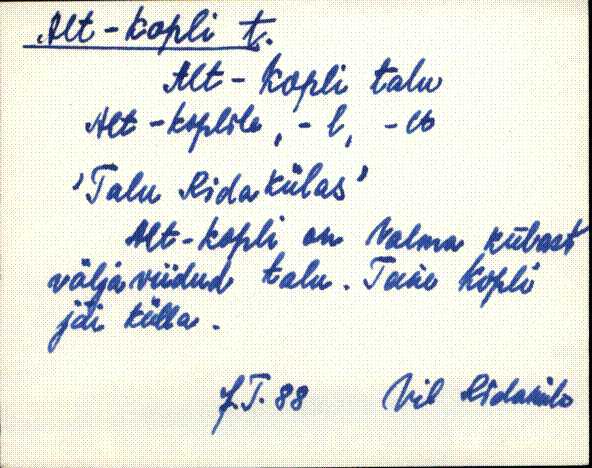 Alt-kopli t.
Alt-Kopli talu
Alt-koplile, -l, -lt
'Talu Rida külas'
Alt-kopli on Valma külast
välja viidud talu. Teine Kopli
jäi külla.
J.T. 88 Vil Ridaküla